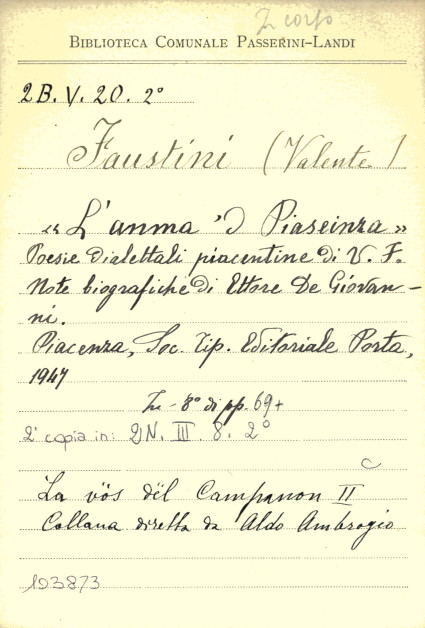 In corso
BIBLIOTECA COMUNALE PASSERINI-LANDI
2B. V. 20. 2°
Faustini (Valente)
« L'anma 'd Piaseinza »
Poesie dialettali piacentine di V. F.
Note biografiche di Ettore De Giovan-
ni.
Piacenza, Soc. Tip. Editoriale Porta,
1947
In-8° di pp. 69+
2ª copia in: 2N. III. 8. 2°
La vös dël Campanon II
Collana diretta da Aldo Ambrogio
193873